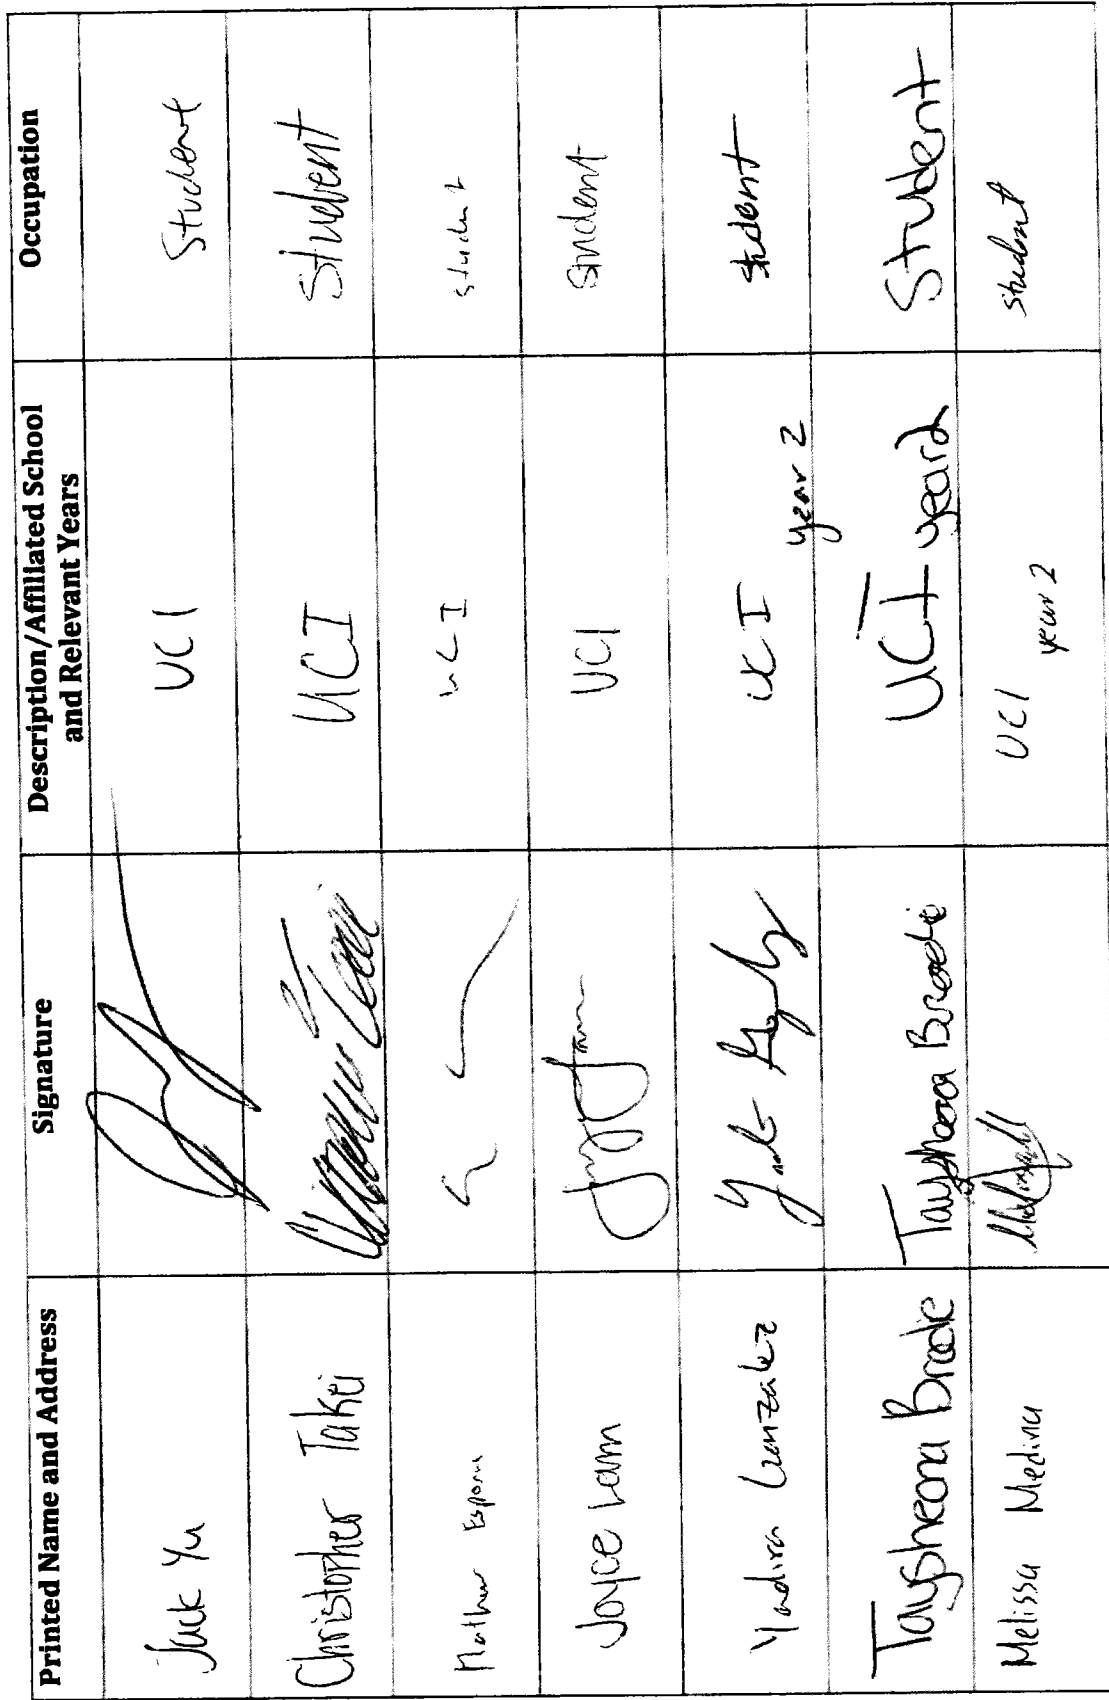 Printed Name and Address Signature Description/Affiliated School and Relevant Years Occupation
Jack Yu UCI Student
Christopher Takei Christopher Takei UCI Student
UCI student
Joyce Lam Joyce Lam UCI Student
Yadira Gonzalez UCI year 2 student
Taysheona Brodie Taysheona Brodie UCI year 2 Student
Melissa Medina UCI year 2 student